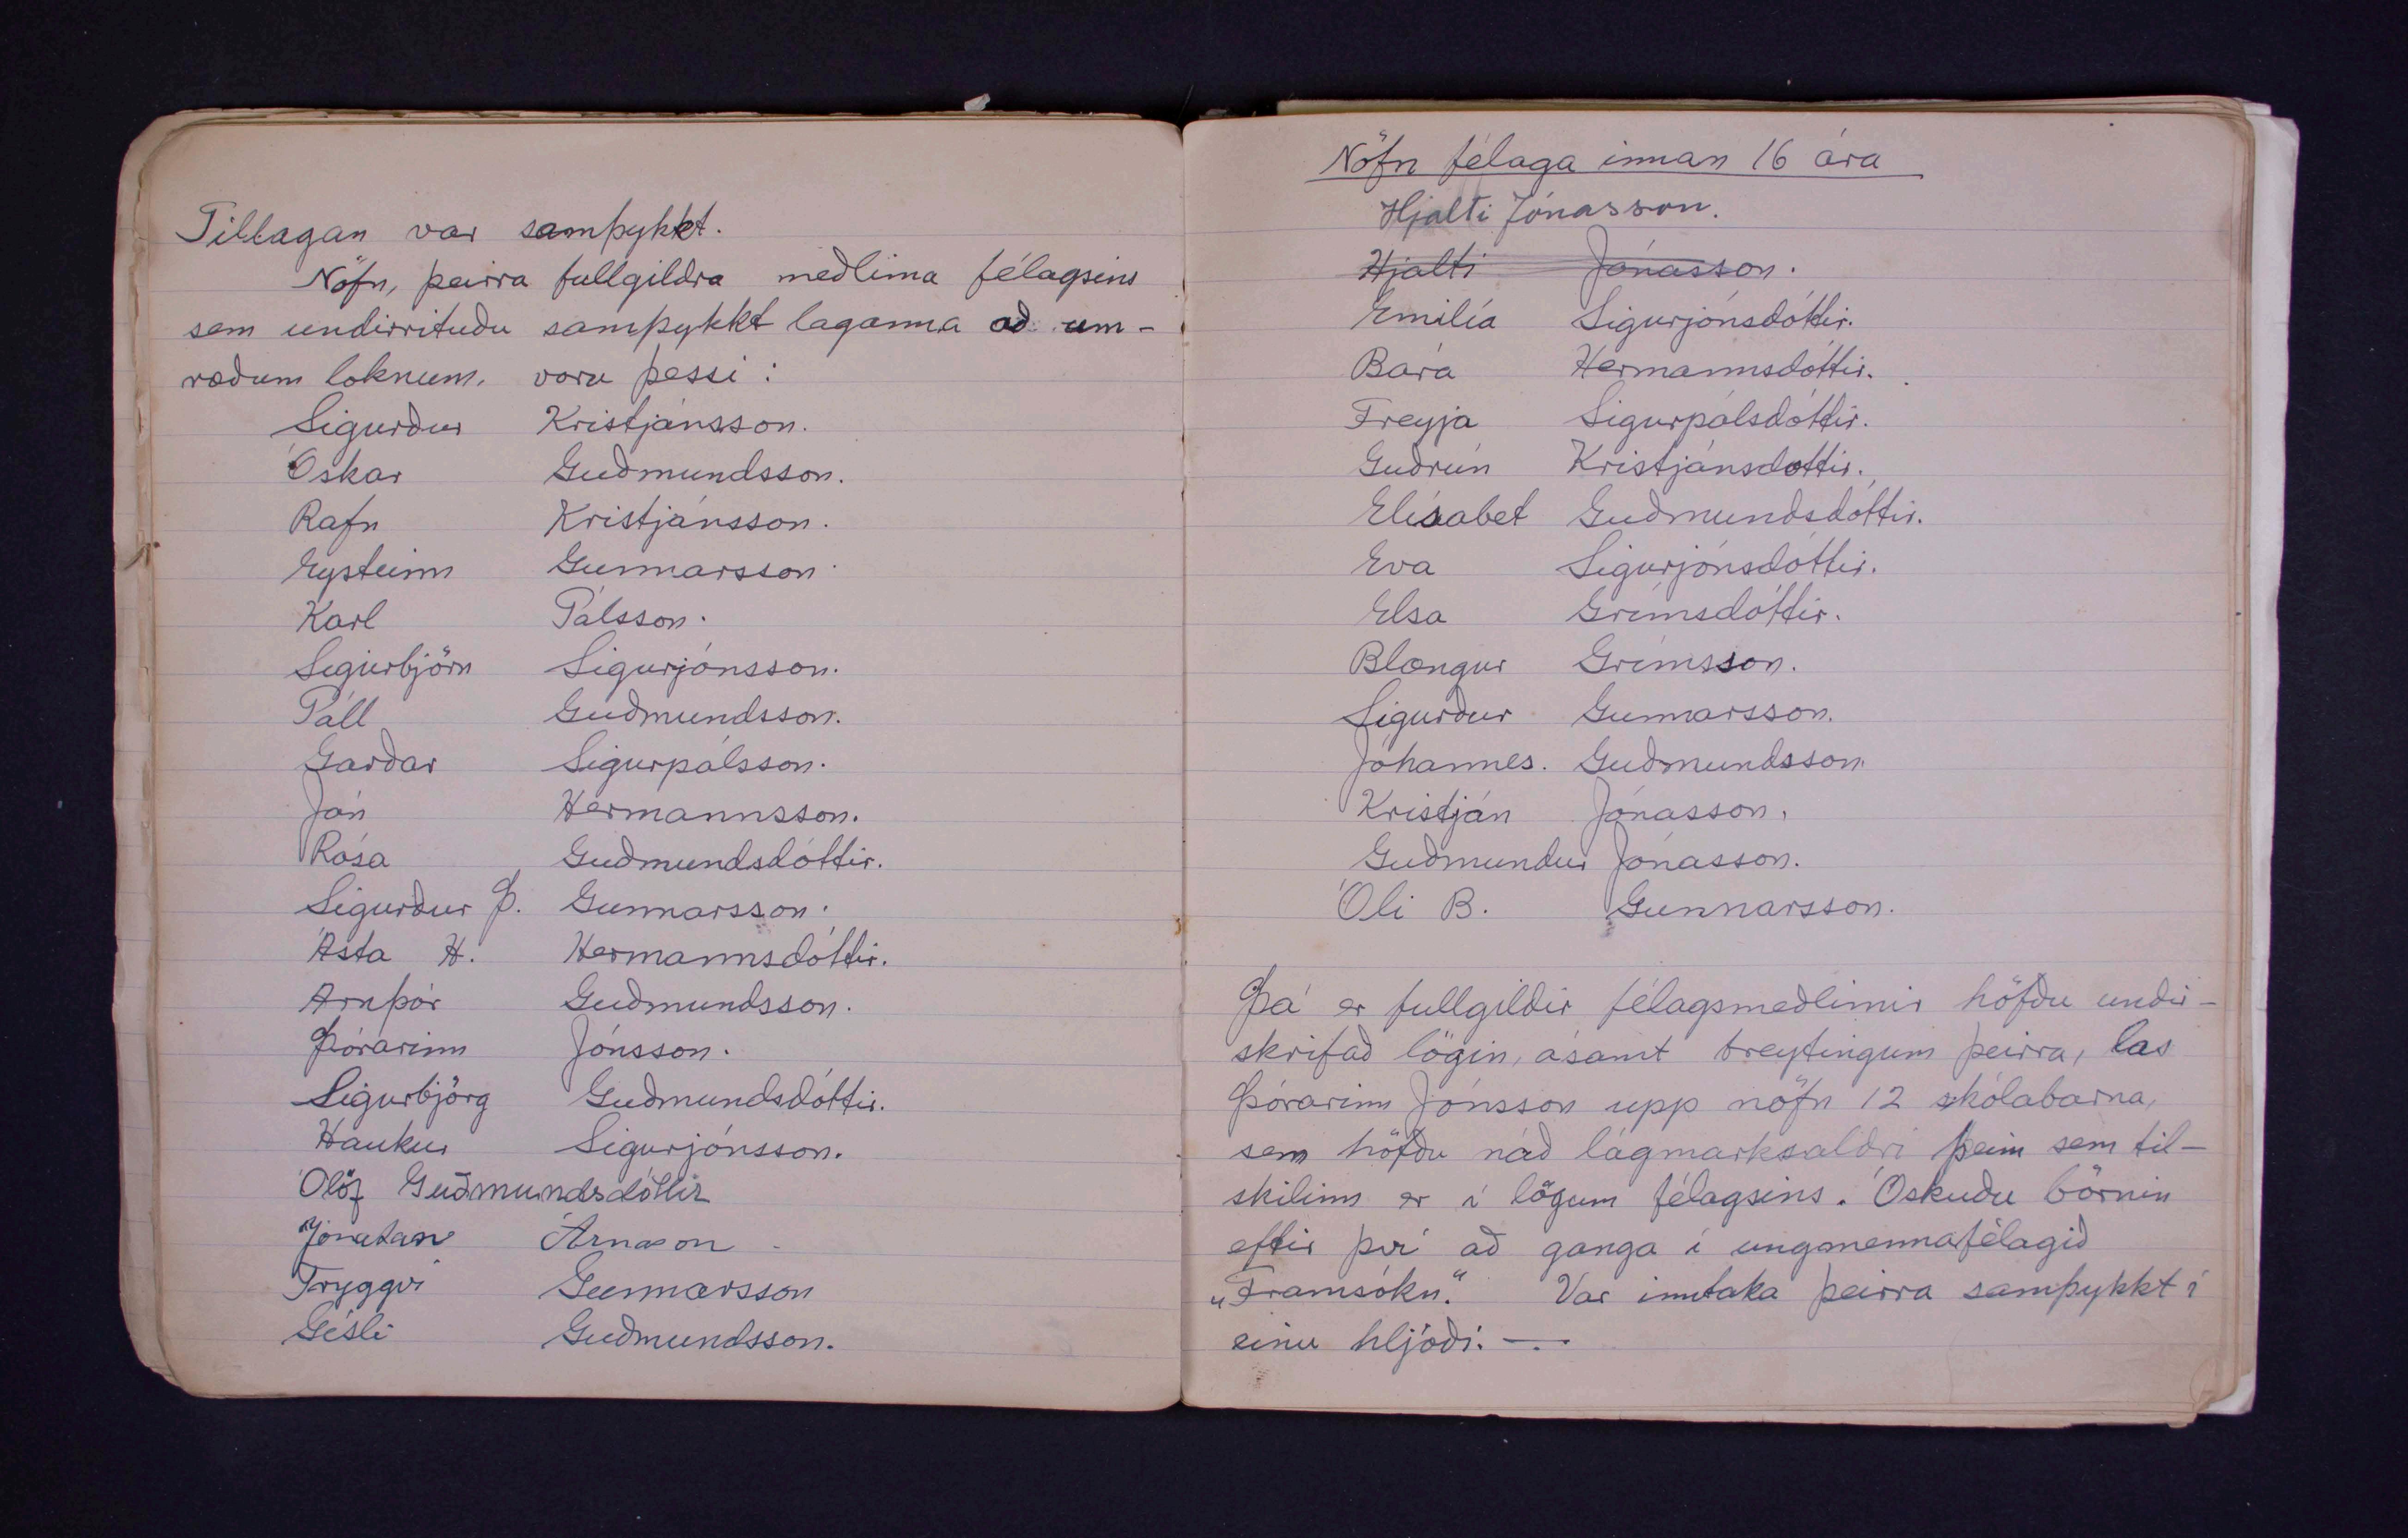 Tillagan var samþykkt.
Nöfn, þeirra fullgildra meðlima félagsins
sem undirrituðu samþykkt laganna að um-
ræðum loknum, voru þessi:
Sigurður Kristjánsson.
Óskar Guðmundsson.
Rafn Kristjánsson.
Eysteinn Gunnarsson.
Karl Pálsson.
Sigurbjörn Sigurjónsson.
Páll Guðmundsson.
Garðar Sigurpálsson.
Jón Hermannsson.
Rósa Guðmundsdóttir.
Sigurður Þ. Gunnarsson.
Ásta H. Hermannsdóttir.
Arnþór Guðmundsson.
Þórarinn Jónsson.
Sigurbjörg Guðmundsdóttir.
Haukur Sigurjónsson.
Ólöf Guðmundsdóttir
Jónatan Árnason.
Tryggvi Gunnarsson
Gísli Guðmundsson.
Nöfn félaga innan 16 ára
Hjalti Jónasson.
Hjalti Jónasson.
Emilía Sigurjónsdóttir.
Bára Hermannsdóttir.
Freyja Sigurpálsdóttir.
Guðrún Kristjánsdóttir.
Elísabet Guðmundsdóttir.
Eva Sigurjónsdóttir.
Elsa Grímsdóttir.
Blængur Grímsson.
Sigurður Gunnarsson.
Jóhannes. Guðmundsson.
Kristján Jónasson.
Guðmundur Jónasson.
Óli B. Gunnarsson.
Þá er fullgildir félagsmeðlimir höfðu undir-
skrifað lögin, ásamt breytingum þeirra, las
Þórarinn Jónsson upp nöfn 12 skólabarna,
sem höfðu náð lágmarksaldri þeim sem til-
skilinn er í lögum félagsins. Óskuðu börnin
eftir því að ganga í ungmennafélagið
„Framsókn". Var inntaka þeirra samþykkt í
einu hljóði. —.-